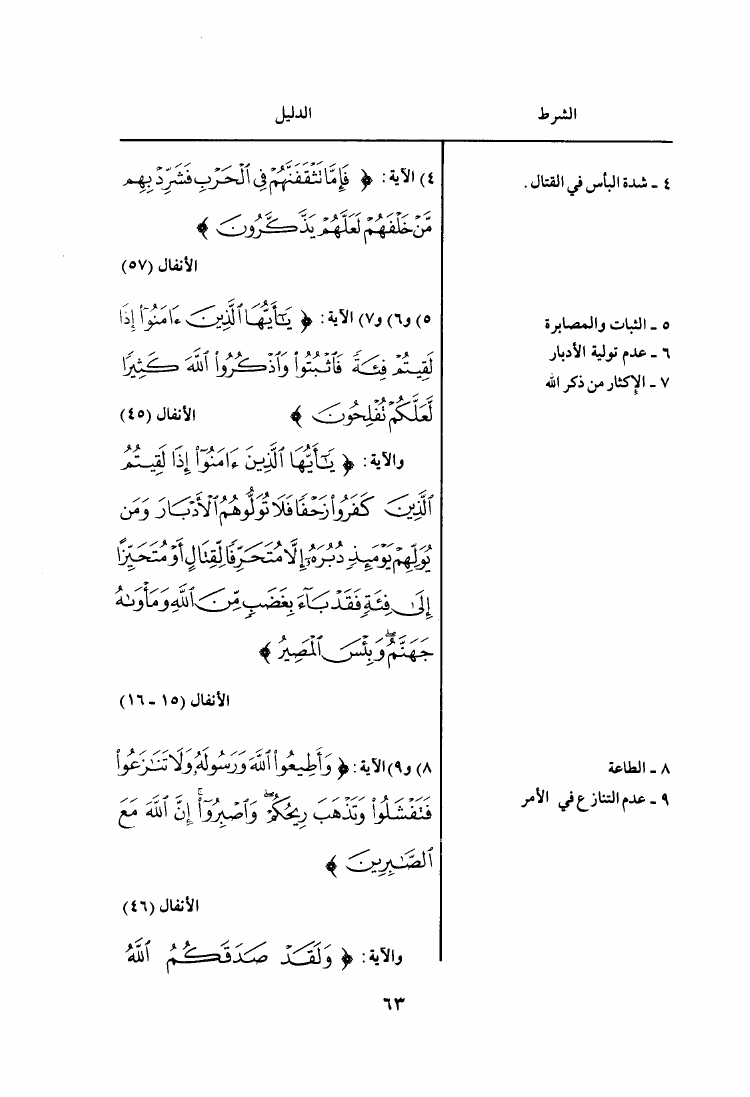 الشرط
الدليل
٤ ـ شدة البأس في القتال .
٤) الآية : ﴿ فَإِمَّا تَثْقَفَنَّهُمْ فِي ٱلْحَرْبِ فَشَرِّدْ بِهِم
مَّنْ خَلْفَهُمْ لَعَلَّهُمْ يَذَّكَّرُونَ ﴾
الأنفال (٥٧)
٥ ـ الثبات والمصابرة
٦ ـ عدم تولية الأدبار
٧ ـ الإكثار من ذكر الله
٥) و٦) و٧) الآية : ﴿ يَٰٓأَيُّهَا ٱلَّذِينَ ءَامَنُوٓا۟ إِذَا
لَقِيتُمْ فِئَةً فَٱثْبُتُوا۟ وَٱذْكُرُوا۟ ٱللَّهَ كَثِيرًا
لَّعَلَّكُمْ تُفْلِحُونَ ﴾ الأنفال (٤٥)
والآية : ﴿ يَٰٓأَيُّهَا ٱلَّذِينَ ءَامَنُوٓا۟ إِذَا لَقِيتُمُ
ٱلَّذِينَ كَفَرُوا۟ زَحْفًا فَلَا تُوَلُّوهُمُ ٱلْأَدْبَارَ وَمَن
يُوَلِّهِمْ يَوْمَئِذٍ دُبُرَهُۥٓ إِلَّا مُتَحَرِّفًا لِّقِتَالٍ أَوْ مُتَحَيِّزًا
إِلَىٰ فِئَةٍ فَقَدْ بَآءَ بِغَضَبٍ مِّنَ ٱللَّهِ وَمَأْوَىٰهُ
جَهَنَّمُ ۖ وَبِئْسَ ٱلْمَصِيرُ ﴾
الأنفال (١٥ ـ ١٦)
٨ ـ الطاعة
٩ ـ عدم التنازع في الأمر
٨) و٩) الآية : ﴿ وَأَطِيعُوا۟ ٱللَّهَ وَرَسُولَهُۥ وَلَا تَنَٰزَعُوا۟
فَتَفْشَلُوا۟ وَتَذْهَبَ رِيحُكُمْ ۖ وَٱصْبِرُوٓا۟ ۚ إِنَّ ٱللَّهَ مَعَ
ٱلصَّٰبِرِينَ ﴾
الأنفال (٤٦)
والآية : ﴿ وَلَقَدْ صَدَقَكُمُ ٱللَّهُ
٦٣